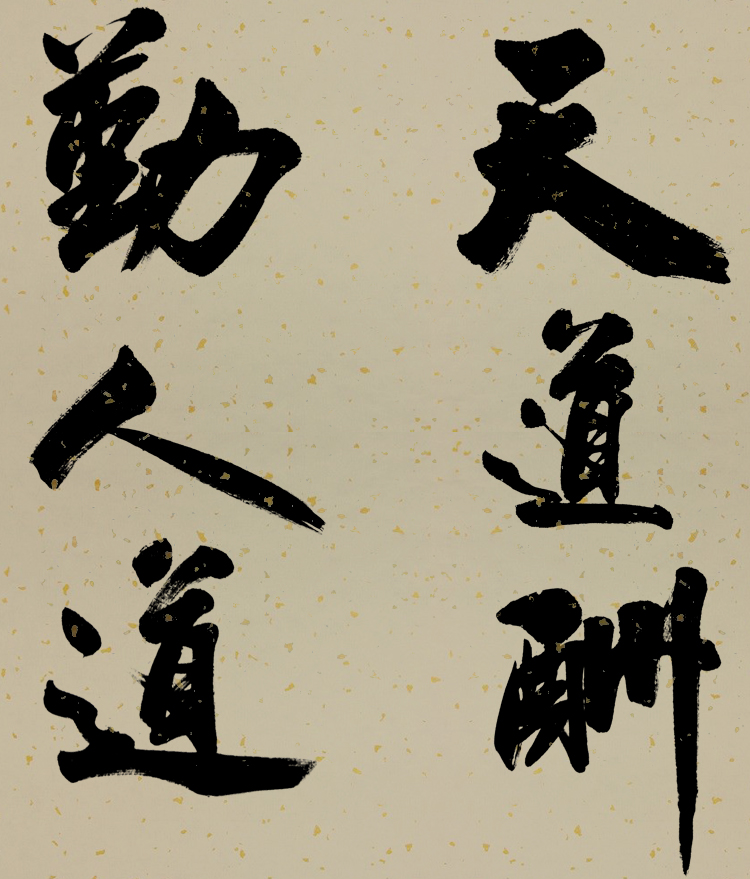 天道酬
勤人道